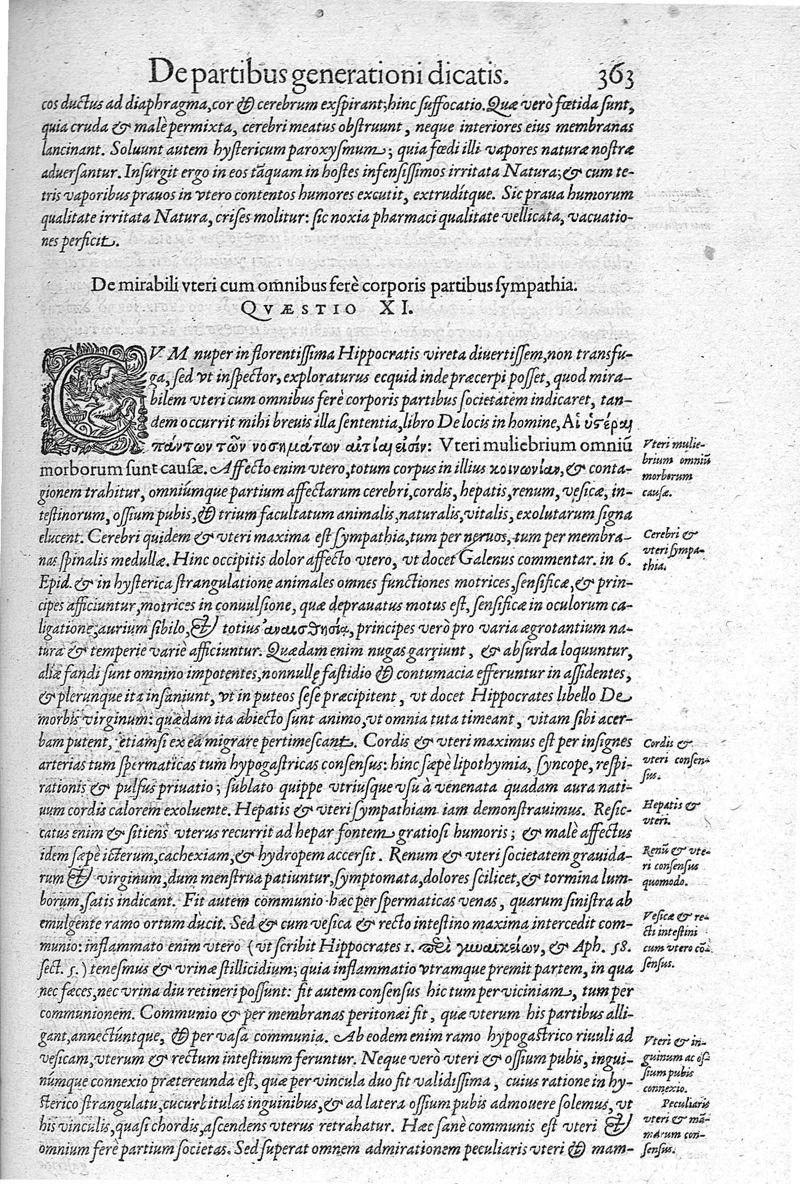 De partibus generationi dicatis. 363
cos ductus ad diaphragma, cor & cerebrum exspirant; hinc suffocatio. Quæ verò fœtida sunt,
quia cruda & malè permixta, cerebri meatus obstruunt, neque interiores eius membranas
lancinant. Soluunt autem hystericum paroxysmum; quia fœdi illi vapores naturæ nostræ
aduersantur. Insurgit ergo in eos tãquam in hostes infensissimos irritata Natura; & cum te-
tris vaporibus prauos in vtero contentos humores excutit, extruditque. Sic praua humorum
qualitate irritata Natura, crises molitur: sic noxia pharmaci qualitate vellicata, vacuatio-
nes perficit.
De mirabili vteri cum omnibus ferè corporis partibus sympathia.
QVÆSTIO XI.
CVM nuper in florentissima Hippocratis vireta diuertissem, non transfu-
ga, sed vt inspector, exploraturus ecquid inde præcerpi posset, quod mira-
bilem vteri cum omnibus ferè corporis partibus societatem indicaret, tan-
dem occurrit mihi breuis illa sententia, libro De locis in homine, Αἱ ὑστέραι
πάντων τῶν νοσημάτων αἰτίαι εἰσίν: Vteri muliebrium omniũ
morborum sunt causæ. Affecto enim vtero, totum corpus in illius κοινωνίαν, & conta-
gionem trahitur, omniúmque partium affectarum cerebri, cordis, hepatis, renum, vesicæ, in-
testinorum, ossium pubis, & trium facultatum animalis, naturalis, vitalis, exolutarum signa
elucent. Cerebri quidem & vteri maxima est sympathia, tum per neruos, tum per membra-
nas spinalis medullæ. Hinc occipitis dolor affecto vtero, vt docet Galenus commentar. in 6.
Epid. & in hysterica strangulatione animales omnes functiones motrices, sensificæ, & prin-
cipes afficiuntur, motrices in conuulsione, quæ deprauatus motus est, sensificæ in oculorum ca-
ligatione, aurium sibilo, & totius ἀναισθησίᾳ, principes verò pro varia ægrotantium na-
tura & temperie variè afficiuntur. Quædam enim nugas garriunt, & absurda loquuntur,
aliæ fandi sunt omnino impotentes, nonnullę fastidio & contumacia efferuntur in assidentes,
& plerunque ita insaniunt, vt in puteos sese præcipitent, vt docet Hippocrates libello De
morbis virginum: quædam ita abiecto sunt animo, vt omnia tuta timeant, vitam sibi acer-
bam putent, etiamsi ex ea migrare pertimescant. Cordis & vteri maximus est per insignes
arterias tum spermaticas tum hypogastricas consensus: hinc sæpè lipothymia, syncope, respi-
rationis & pulsus priuatio; sublato quippe vtriusque vsu à venenata quadam aura nati-
uum cordis calorem exoluente. Hepatis & vteri sympathiam iam demonstrauimus. Resic-
catus enim & sitiens vterus recurrit ad hepar fontem gratiosi humoris; & malè affectus
idem sæpè icterum, cachexiam, & hydropem accersit. Renum & vteri societatem grauida-
rum & virginum, dum menstrua patiuntur, symptomata, dolores scilicet, & tormina lum-
borum, satis indicant. Fit autem communio hæc per spermaticas venas, quarum sinistra ab
emulgente ramo ortum ducit. Sed & cum vesica & recto intestino maxima intercedit com-
munio: inflammato enim vtero (vt scribit Hippocrates 1. περὶ γυναικείων, & Aph. 58.
sect. 5.) tenesmus & vrinæ stillicidium; quia inflammatio vtramque premit partem, in qua
nec fæces, nec vrina diu retineri possunt: fit autem consensus hic tum per viciniam, tum per
communionem. Communio & per membranas peritonæi fit, quæ vterum his partibus alli-
gant, annectúntque, & per vasa communia. Ab eodem enim ramo hypogastrico riuuli ad
vesicam, vterum & rectum intestinum feruntur. Neque verò vteri & ossium pubis, ingui-
númque connexio prætereunda est, quæ per vincula duo fit validissima, cuius ratione in hy-
sterico strangulatu, cucurbitulas inguinibus, & ad latera ossium pubis admouere solemus, vt
his vinculis, quasi chordis, ascendens vterus retrahatur. Hæc sanè communis est vteri &
omnium fere partium societas. Sed superat omnem admirationem peculiaris vteri & mam-
Vteri mulie-
brium omniũ
morborum
causæ.
Cerebri &
vteri sympa-
thia.
Cordis &
vteri consen-
sus.
Hepatis &
vteri.
Renũ & vte-
ri consensus
quomodo.
Vesicæ & re-
cti intestini
cum vtero cõ-
sensus.
Vteri & in-
guinum ac os-
sium pubis
connexio.
Peculiaris
vteri & mã-
marum con-
sensus.